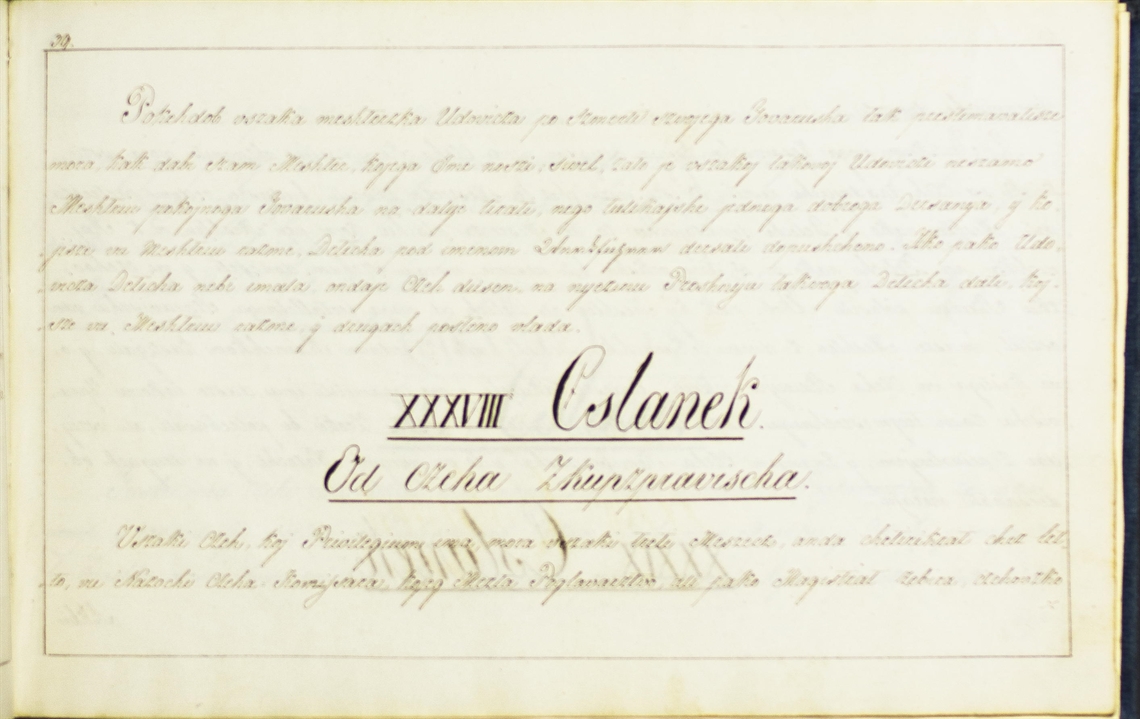 39.
Pokehdob vszaka meshterzka Udovicza po Szmerti szvojega Tovarusha tak prestimavatisze
mora, kak dabi szam Meshter, kojega Ime neszi, sivel, zato je vszakoj takovoj Udovici neszamo
Meshtriu pokojnoga Tovarusha na dalje tirati, nego tulikajshe jednoga dobroga Dersanja, y ko-
jsze vu Meshtriu razme, Deticha pod imenom dersati dopushcheno. Ako pako Udo-
vicza Deticha nebi imala, ondaje Czeh dusen, na nyezinu Proshnyu takvoga Deticha dati, koj-
sze vu Meshtriu razme, y drugach posteno vlada.
XXXVIII Cslanek.
Od Czeha Zkupzpravischa.
Vszaki Czeh, koj Privilegium ima mora vszaki treti Meszecz, anda chetirikrat chez let-
to, vu Nazochi Czeha Komissara, kojeg Meszta Poglavarztvo, ali pako Magistrat zebira, czehovzko